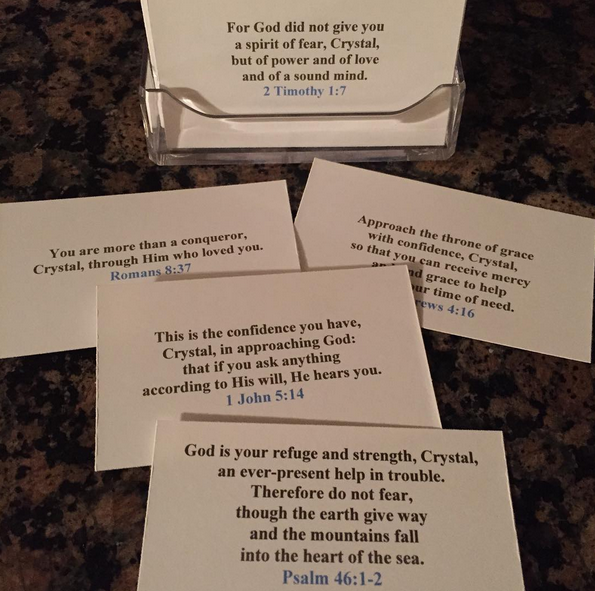 For God did not give you
a spirit of fear, Crystal,
but of power and of love
and of a sound mind.
2 Timothy 1:7
You are more than a conqueror,
Crystal, through Him who loved you.
Romans 8:37
Approach the throne of grace
with confidence, Crystal,
so that you can receive mercy
grace to help
time of need.
4:16
This is the confidence you have,
Crystal, in approaching God:
that if you ask anything
according to His will, He hears you.
1 John 5:14
God is your refuge and strength, Crystal,
an ever-present help in trouble.
Therefore do not fear,
though the earth give way
and the mountains fall
into the heart of the sea.
Psalm 46:1-2